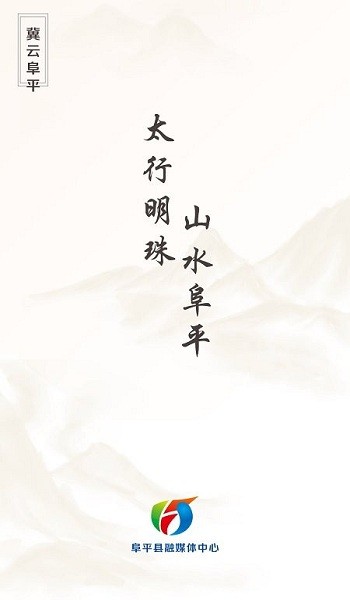 冀云阜平
太行明珠
山水阜平
阜平县融媒体中心